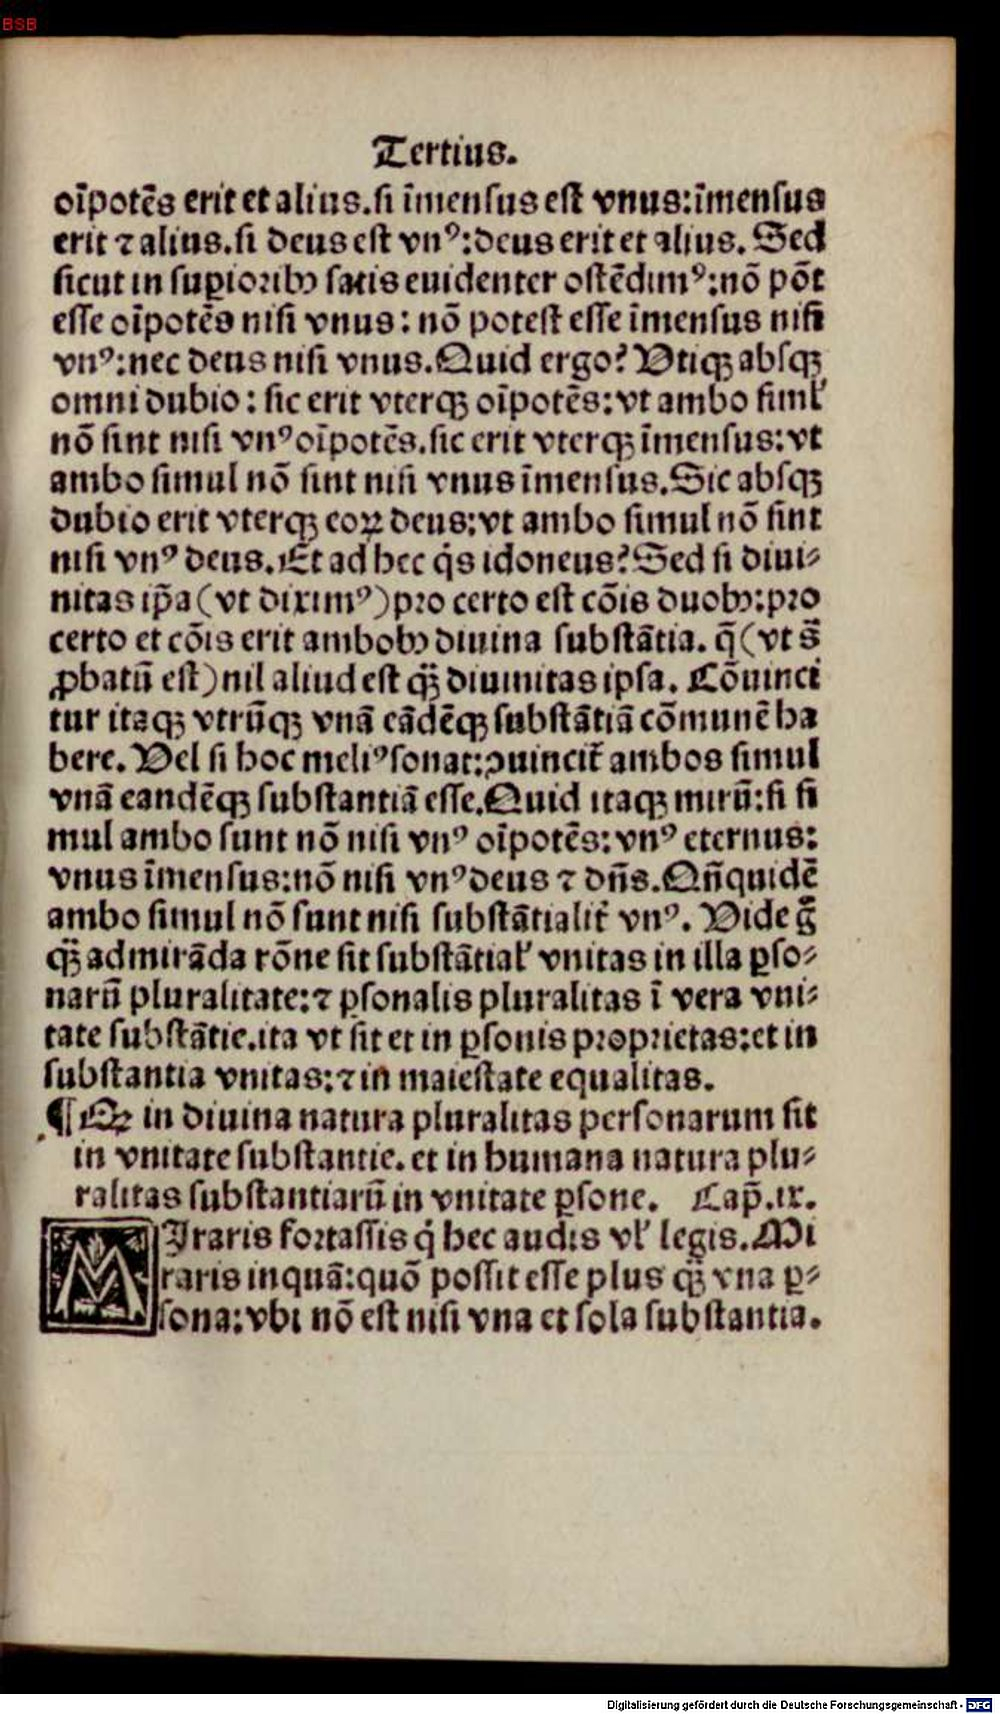 BSB
Tertius.
oīpotēs erit et alius.si īmensus est vnus:īmensus
erit ⁊ alius.si deus est vnꝰ:deus erit et alius. Sed
sicut in supioribꝫ satis euidenter ostēdimꝰ:nō pōt
esse oīpotēs nisi vnus: nō potest esse īmensus nisi
vnꝰ:nec deus nisi vnus.Quid ergo? Vtiqꝫ absqꝫ
omni dubio: sic erit vterqꝫ oīpotēs:vt ambo siml'
nō sint nisi vnꝰ oīpotēs.sic erit vterqꝫ īmensus:vt
ambo simul nō sint nisi vnus īmensus.Sic absqꝫ
dubio erit vterqꝫ eoꝝ deus:vt ambo simul nō sint
nisi vnꝰ deus. Et ad hec q̇s idoneus? Sed si diui⸗
nitas ip̄a (vt diximꝰ) pro certo est cōis duobꝫ:pro
certo et cōis erit ambobꝫ diuina substātia. q̄ (vt s̄
ꝓbatū est) nil aliud est qꝫ̄ diuinitas ipsa. Cōuinci
tur itaqꝫ vtrūqꝫ vnā eādēqꝫ substātiā cōmunē ha
bere. Vel si hoc meliꝰ sonat:ꝯuincit̄ ambos simul
vnā eandēqꝫ substantiā esse.Quid itaqꝫ mirū:si si
mul ambo sunt nō nisi vnꝰ oīpotēs:vnꝰ eternus:
vnus īmensus:nō nisi vnꝰ deus ⁊ dn̄s.Qn̄quidē
ambo simul nō sunt nisi substātialit̄ vnꝰ. Vide g̊
qꝫ̄ admirāda rōne sit substātial' vnitas in illa ꝑso⸗
narū pluralitate:⁊ ꝑsonalis pluralitas ī vera vni⸗
tate substātie.ita vt sit et in ꝑsonis proprietas:et in
substantia vnitas:⁊ in maiestate equalitas.
¶ Qꝙ in diuina natura pluralitas personarum sit
in vnitate substantie. et in humana natura plu⸗
ralitas substantiarū in vnitate ꝑsone. Cap̄.ix.
MIraris fortassis q̇ hec audis vl' legis.Mi
raris inquā:quō possit esse plus qꝫ̄ vna ꝑ⸗
sona:vbi nō est nisi vna et sola substantia.
Digitalisierung gefördert durch die Deutsche Forschungsgemeinschaft - DFG